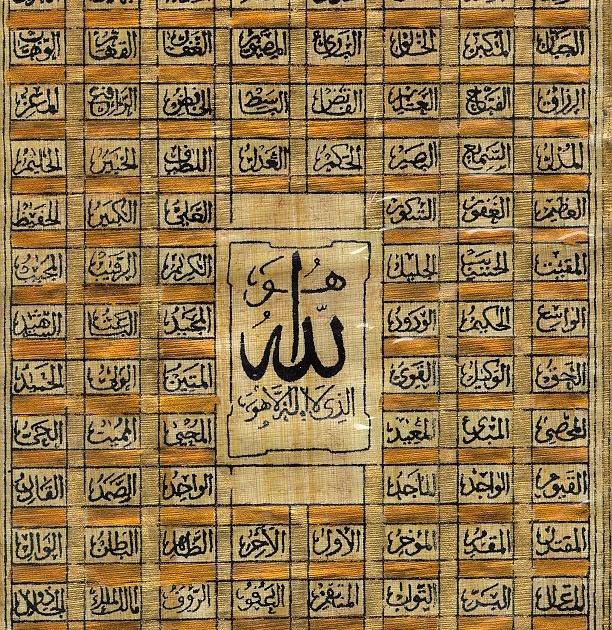 الجبار المتكبر الخالق البارئ المصور الغفار القهار الوهاب
الرزاق الفتاح العليم القابض الباسط الخافض الرافع المعز
المذل السميع البصير الحكم العدل اللطيف الخبير الحليم
العظيم الغفور الشكور العلي الكبير الحفيظ
المقيت الحسيب الجليل الكريم الرقيب المجيب
الواسع الحكيم الودود المجيد الباعث الشهيد
هو
الله
الذي لا إله إلا هو
الحق الوكيل القوي المتين الولي الحميد
المحصي المبدئ المعيد المحيي المميت الحي
القيوم الواجد الماجد الواحد الصمد القادر
المقتدر المقدم المؤخر الأول الآخر الظاهر الباطن الوالي
المتعال البر التواب المنتقم العفو الرؤوف مالك الملك